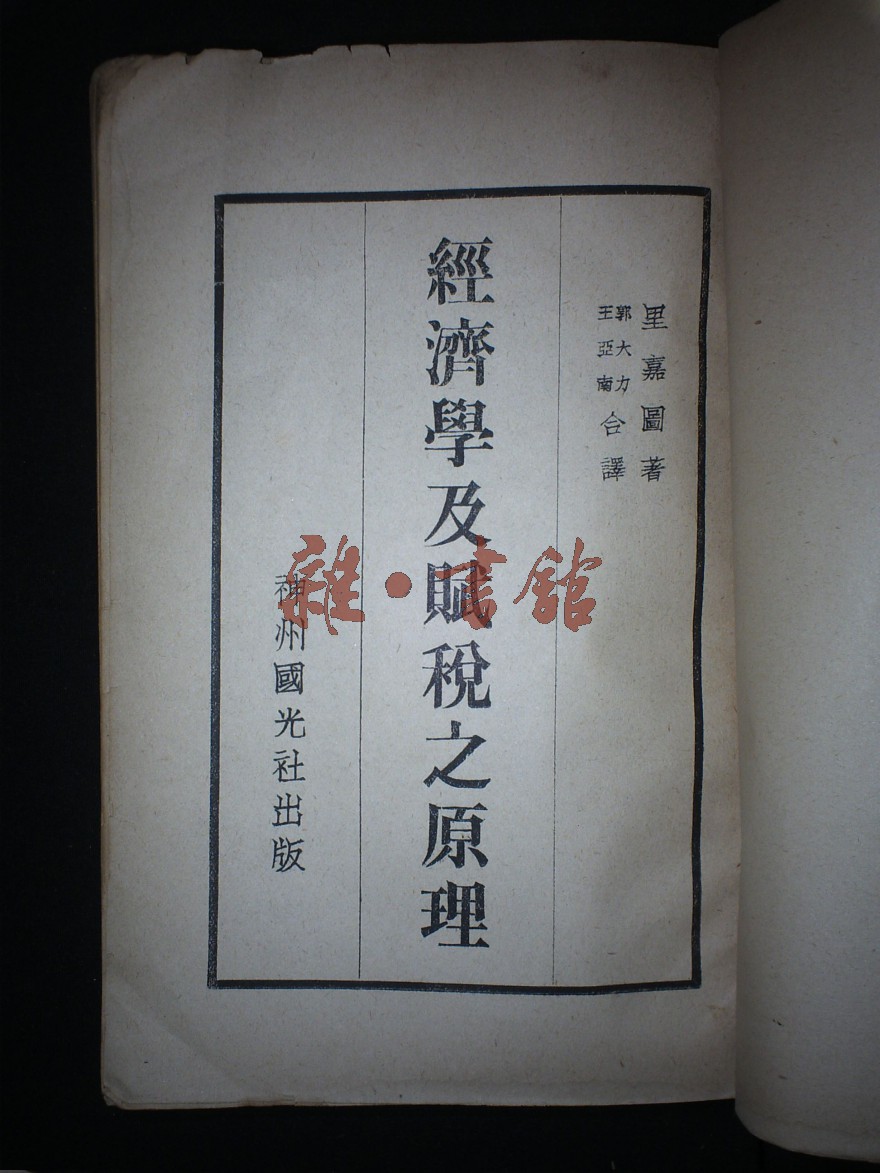 里嘉圖著
郭大力
王亞南
合譯
經濟學及賦稅之原理
神州國光社出版
雜·書館